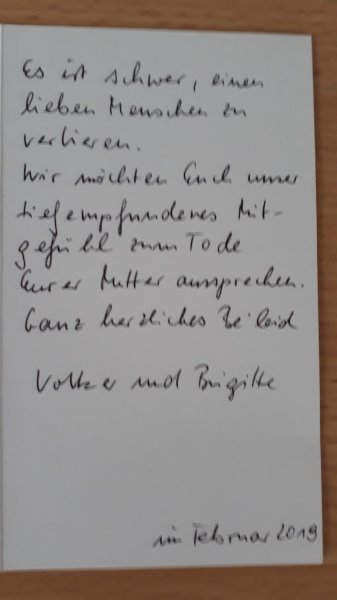 Es ist schwer, einen
lieben Menschen zu
verlieren.
Wir möchten Euch unser
tiefempfundenes Mit-
gefühl zum Tode
Eurer Mutter aussprechen.
Ganz herzliches Beileid
Volker und Brigitte
im Februar 2019